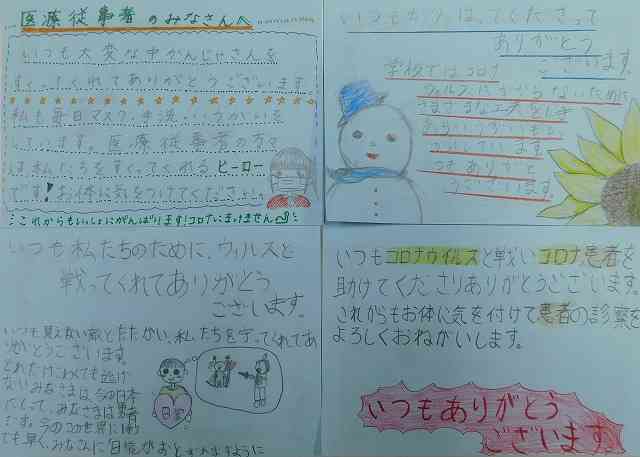 医療従事者のみなさんへ
いつも大変な中かんじゃさんを
すくってくれてありがとうございます。
私も毎日マスク、手洗い、うがいを
しています。医療従事者の方々
は私たちをすくってくれるヒーロー
です!お体に気をつけてください。
これからもいっしょにがんばります!コロナにまけません
いつもがんばってくださって
ありがとう
ございます。
学校ではコロナ
ウィルスにかからないために、
さまざまな工夫をし
しています。
ありがとう
ございます。
いつも私たちのために、ウィルスと
戦ってくれてありがとう
ございます。
いつも見えない敵とたたかい、私たちを守ってくれてあ
りがとうございます。
どれだけこわくても逃げ
ないみなさまは、今の日本
にとって、みなさまは勇者
です。今のコロナ世界に
ても早く、みなさんに日常が
日常
いつもコロナウイルスと戦いコロナ患者を
助けてくださりありがとうございます。
これからもお体に気を付けて患者の診察を
よろしくおねがいします。
いつもありがとう
ございます。